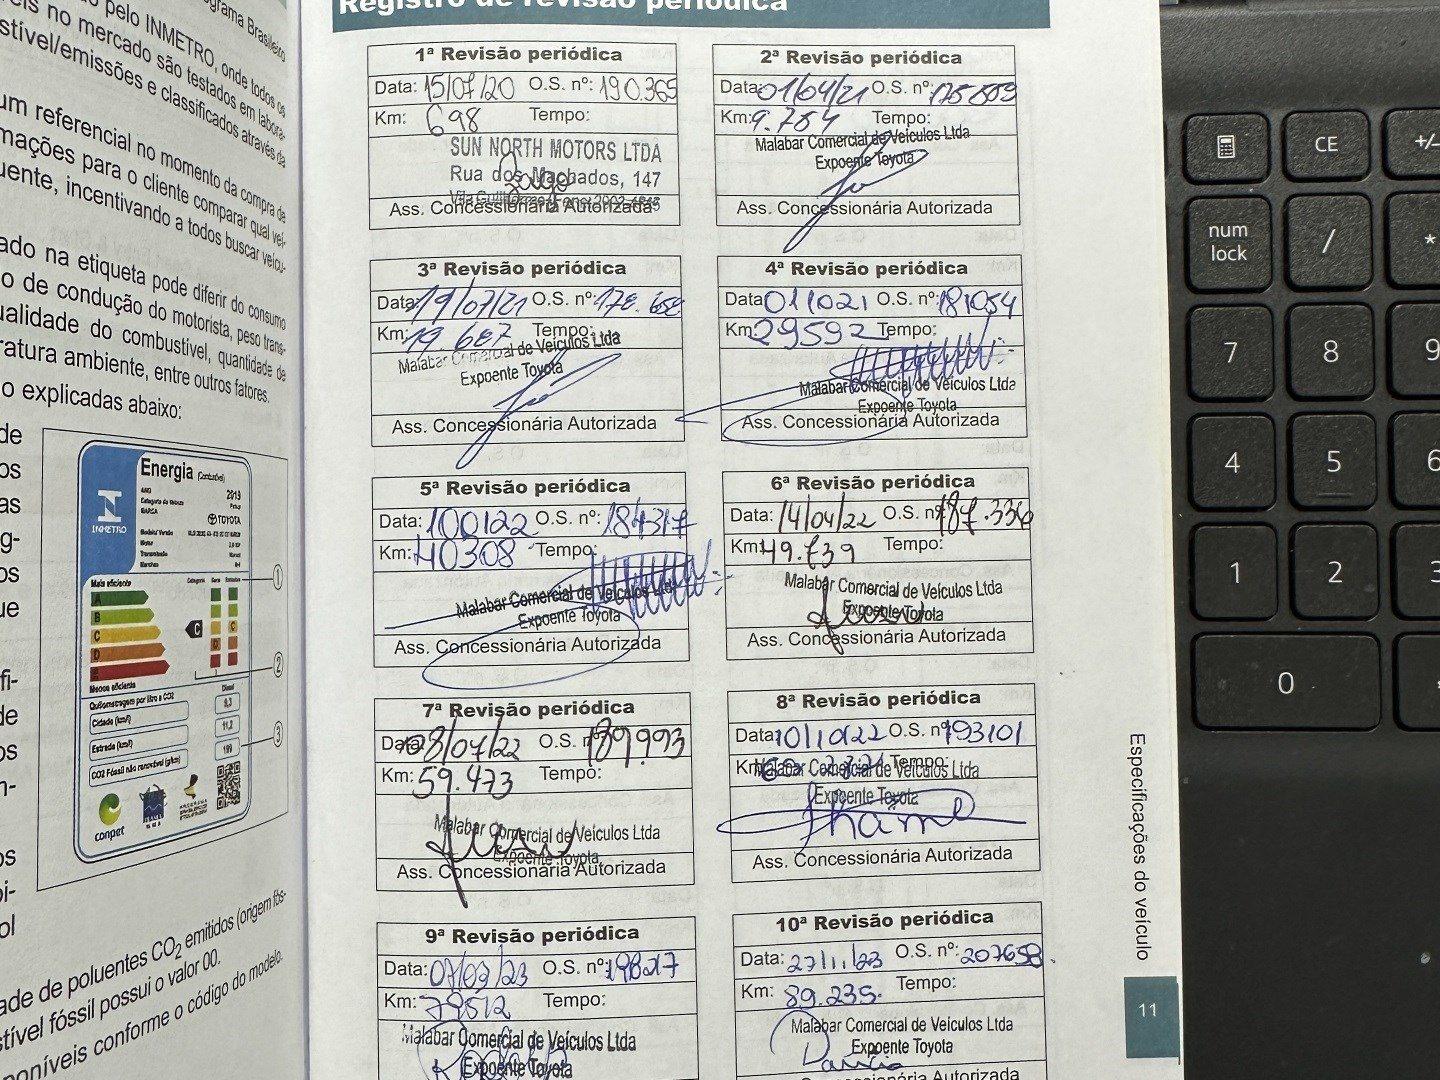 grama Brasileiro
o pelo INMETRO, onde todos os
eis no mercado são testados em labora-
stível/emissões e classificados através da
um referencial no momento da compra de
mações para o cliente comparar qual veí-
uente, incentivando a todos buscar veícu-
ado na etiqueta pode diferir do consumo
o de condução do motorista, peso trans-
ualidade do combustível, quantidade de
ratura ambiente, entre outros fatores.
o explicadas abaixo:
de
os
as
g-
os
ue
fi-
de
os
n-
os
i-
ol
INMETRO
Energia (Combustível)
ANO 2019
Categoria do Veículo Pickup
MARCA TOYOTA
Modelo/ Versão
Motor
Transmissão Manual
Marchas
Mais eficiente
A
B
C
D
E
C
C
D
Menos eficiente
1
2
3
Quilometragem por litro e CO2 Diesel
Cidade (km/l) 9,3
Estrada (km/l) 11,2
CO2 Fóssil não renovável (g/km) 199
conpet
ade de poluentes CO2 emitidos (origem fós-
stível fóssil possui o valor 00.
poníveis conforme o código do modelo.
Registro de revisão periódica
1ª Revisão periódica
Data: 15/07/20 O.S. nº: 190.365
Km: 698 Tempo:
SUN NORTH MOTORS LTDA
Rua dos Machados, 147
Ass. Concessionária Autorizada
2ª Revisão periódica
Data: 01/04/21 O.S. nº: 175.859
Km: 9.754 Tempo:
Malabar Comercial de Veículos Ltda
Expoente Toyota
Ass. Concessionária Autorizada
3ª Revisão periódica
Data: 19/07/21 O.S. nº: 178.652
Km: 19.687 Tempo:
Malabar Comercial de Veículos Ltda
Expoente Toyota
Ass. Concessionária Autorizada
4ª Revisão periódica
Data: 011021 O.S. nº: 181054
Km: 29592 Tempo:
Malabar Comercial de Veículos Ltda
Expoente Toyota
Ass. Concessionária Autorizada
5ª Revisão periódica
Data: 100122 O.S. nº: 184317
Km: 40308 Tempo:
Malabar Comercial de Veículos Ltda
Expoente Toyota
Ass. Concessionária Autorizada
6ª Revisão periódica
Data: 14/04/22 O.S. nº: 187.336
Km: 49.739 Tempo:
Malabar Comercial de Veículos Ltda
Expoente Toyota
Ass. Concessionária Autorizada
7ª Revisão periódica
Data: 08/07/22 O.S. nº: 189.993
Km: 59.473 Tempo:
Malabar Comercial de Veículos Ltda
Expoente Toyota
Ass. Concessionária Autorizada
8ª Revisão periódica
Data: 10/10/22 O.S. nº 193101
Km: Tempo:
Malabar Comercial de Veículos Ltda
Expoente Toyota
Ass. Concessionária Autorizada
9ª Revisão periódica
Data: 07/03/23 O.S. nº: 198217
Km: 79512 Tempo:
Malabar Comercial de Veículos Ltda
Expoente Toyota
10ª Revisão periódica
Data: 27/11/23 O.S. nº: 207658.
Km: 89.235. Tempo:
Malabar Comercial de Veículos Ltda
Expoente Toyota
Ass. Concessionária Autorizada
Especificações do veículo
11
CE
+/-
num lock
/
*
7
8
9
4
5
6
1
2
3
0